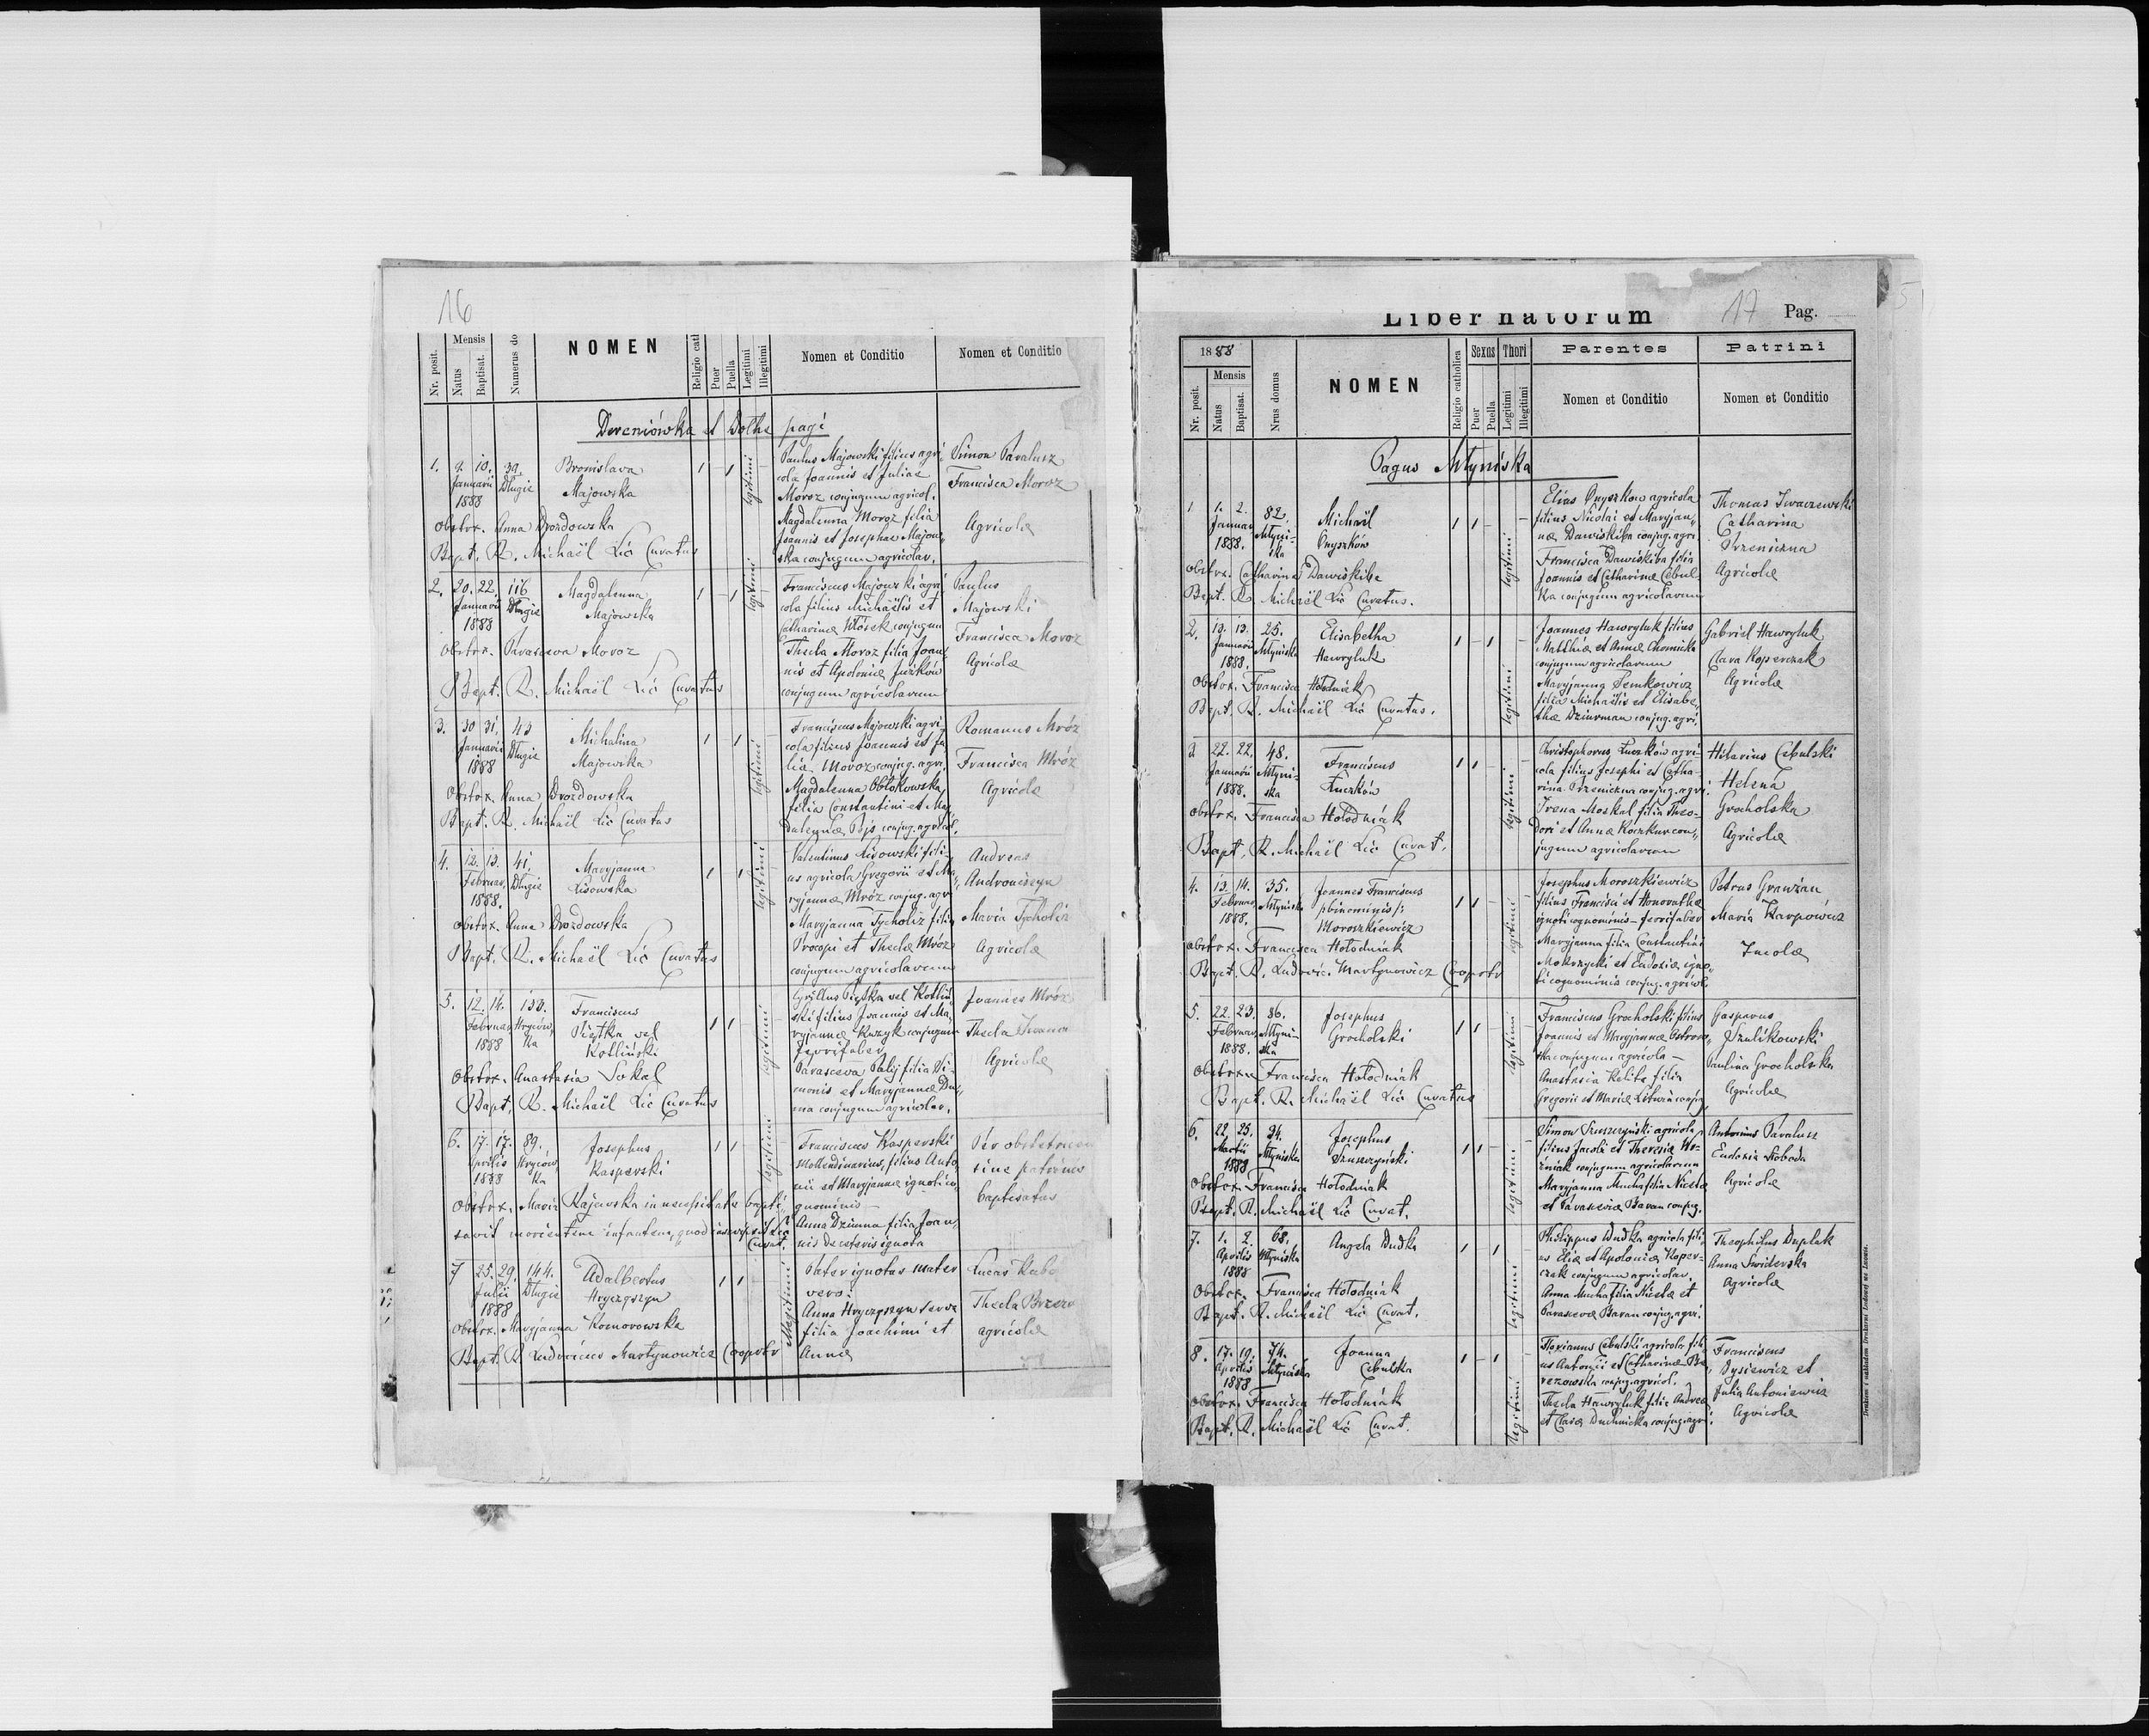 16
Nr. posit.
Mensis
Natus
Baptisat.
Numerus do
NOMEN
Religio cath
Puer
Puella
Legitimi
Illegitimi
Nomen et Conditio
Nomen et Conditio
Dereniówka et Dołhe pagi
1. 9. 10. 39. Bronislava
Januarii Długie Majowska
1888
legitimi
Paulus Majowski filius agri
cola Joannis et Juliae
Moroz conjugum agricol.
Magdalenna Moroz filia
Joannis et Josephae Majow„
ska conjugum agricolar.
Simon Paralusz
Francisca Moroz
Agricolae
Obstrx. Anna Drozdowska
Bapt. R. Michaël Lić Curatus
2. 20. 22. 116 Magdalenna
Januarii Długie Majowska
1888
legitimi
Franciscus Majowski agri
cola filius Michaëlis et
Catharinae Wtórek conjugum
Thecla Moroz filia Joan„
nis et Apoloniae Jurków
conjugum agricolarum
Paulus
Majowski
Francisca Moroz
Agricolae
Obstrx. Parasceva Moroz
Bapt. R. Michaël Lić Curatus
3. 30 31. 43 Michalina
Januarii Długie Majowska
1888
legitimi
Franciscus Majowski agri
cola filius Joannis et Ju
lia Moroz conjug. agri.
Magdalenna Obłokowska
filia Constantini et Mag
dalennae Bjs conjug. agricol.
Romanus Mróz
Francisca Mróz
Agricolae
Obstrx. Anna Drozdowska
Bapt. R. Michaël Lić Curatus
4. 12. 13. 41. Maryjanna
Februar. Długie Lisowska
1888.
legitimi
Valentinus Lisowski fili„
us agricola Gregorii et Ma„
ryjannae Mróz conjug. agr
Maryjanna Tycholiz filia
Procopi et Theclae Mróz
conjugum agricolarum
Andreas
Androniszyn
Maria Tycholiz
Agricolae
Obstrx. Anna Drozdowska
Bapt. R. Michaël Lić Curatus
5. 12. 14. 153. Franciscus
Februar Hryców„ Piętka vel
1888 ka Kotliński
legitimi
Cyryllus Piętka vel Kotliń„
ski filius Joannis et Ma„
ryjannae Kuzyk conjugum
ferrifaber
Parasceva Palij filia Si„
monis et Maryjannae Du„
ma conjugum agricolar.
Joannes Mróz
Thecla Iwana
Agricolae
Obstrx. Anastasia Sokal
Bapt. R. Michaël Lić Curatus
6. 17. 17. 89. Josephus
Aprilis Hryców Kasperski
1888 ka
legitimi
Franciscus Kasperski
mollendinarius, filius Anto„
nii et Maryjannae ignoti co„
gnominis
Anna Dziunna filia Joan„
nis de ceteris ignota
Per obstetricem
sine patrinis
baptisatus
Obstrx. Maria Kajewska in necessitate bapti„
savit morientem infantem, quod inscripsit Lić
Curat.
7 25. 29. 144. Adalbertus
Julii Długie Hryczyszyn
1888
illegitimi
Pater ignotus mater
vero:
Anna Hryczyszyn serva
filia Joachimi et
Annae
Lucas Kabo
Thecla Brzezo
agricolae
Obstrx. Maryjanna Komorowska
Bapt. R. Ludovicus Martynowicz Cooprtr
Liber natorum
17
Pag.
1888
Nr. posit.
Mensis
Natus
Baptisat.
Nrus domus
NOMEN
Religio catholica
Sexus
Puer
Puella
Thori
Legitimi
Illegitimi
Parentes
Nomen et Conditio
Patrini
Nomen et Conditio
Pagus Młyniska
1 1. 2. 82. Michaël
Januar Młyni- Onyszków
1888. ska
legitimi
Elias Onyszkow agricola
filius Nicolai et Maryjan„
nae Dawiskiba conjug. agri.
Francisca Dawiskiba filia
Joannis et Catharinae Cebul„
ka conjugum agricolarum
Thomas Iwaczewski
Catharina
Przeniczna
Agricolae
obstrx. Catharina Dawiskiba
Bapt. R. Michaël Lić Curatus.
2. 13. 13. 25. Elisabetha
Januarii Młyniska Hawryluk
1888.
legitimi
Joannes Hawryluk filius
Matthiae et Annae Chomicka
conjugum agricolarum
Maryjanna Senkowicz
filia Michaëlis et Elisabe„
thae Dziurman conjug. agri.
Gabriel Hawryluk
Clara Koperczak
Agricolae
Obstrx. Francisca Hołodniak
Bapt. R. Michaël Lić Curatus.
3 22. 22. 48. Franciscus
Januarii Młyni- Łuczków
1888. ska
legitimi
Christophorus Łuczków agri-
cola filius Josephi et Catha-
rina Przeniczna conjug. agri.
Irena Moskal filia Theo-
dori et Annae Koczkur con„
jugum agricolarum
Hilarius Cibulski
Helena
Grocholska
Agricolae
Obstrx. Francisca Hołodniak
Bapt. R. Michaël Lić Curat.
4. 13. 14. 35. Joannes Franciscus
Februar Młyniska /:binominis:/
1888. Moroszkiewicz
legitimi
Josephus Moroszkiewicz
filius Francisci et Honorathae
ignoti cognominis - ferrifaber
Maryjanna filia Constantini
Mokrzycki et Eudoxiae igno„
ti cognominis conjug. agricol.
Petrus Granzan
Maria Karpowicz
Incolae
obstrx. Francisca Hołodniak
Bapt. R. Ludovic. Martynowicz Cooprtr
5. 22. 23. 86. Josephus
Februar. Młyni- Grocholski
1888. ska
legitimi
Franciscus Grocholski filius
Joannis et Maryjannae Ostrow„
ska conjugum agricola -
Anastasia Kolita filia
Gregorii et Mariae Litwin conjug
Gasparus
Szulikowski
Paulina Grocholska
Agricolae
Obstrx. Francisca Hołodniak
Bapt. R. Michaël Lić Curatus
6. 22. 25. 94. Josephus
Martii Młyniska Szuszczyński
1888
legitimi
Simon Szuszczyński agricola
filius Jacobi et Theresiae Wo-
źniak conjugum agricolarum
Maryjanna Mucha filia Nicolae
et Parascevia Baran conjug.
Antonius Paralusz
Eudoxia Słoboda
Agricolae
Obstrx. Francisca Hołodniak
Bapt. R. Michaël Lić Curat.
7. 1. 2. 68. Angela Dudka
Aprilis Młyniska
1888
legitimi
Philippus Dudka agricola fili„
us Eliae et Apoloniae Koper-
czak conjugum agricolar.
Anna Mucha filia Nicolae et
Parascevae Baran conjug. agri.
Theophilus Duplak
Anna Swiderska
Agricolae
Obstrx. Francisca Hołodniak
Bapt. R. Michaël Lić Curat.
8. 17. 19. 74. Joanna
Aprilis Młyniska Cebulska
1888
legitimi
Florianus Cebulski agricola fili„
us Antonii et Catharinae Be„
rezowska conjug. agricol.
Thecla Hawryluk filia Andreae
et Clarae Duchnicka conjug. agri.
Franciscus
Dysiewicz et
Julia Antoniewicz
Agricolae
obstrx. Francisca Hołodniak
Bapt. R. Michaël Lić Curat.
Drukiem i nakładem Drukarni Ludowej we Lwowie.